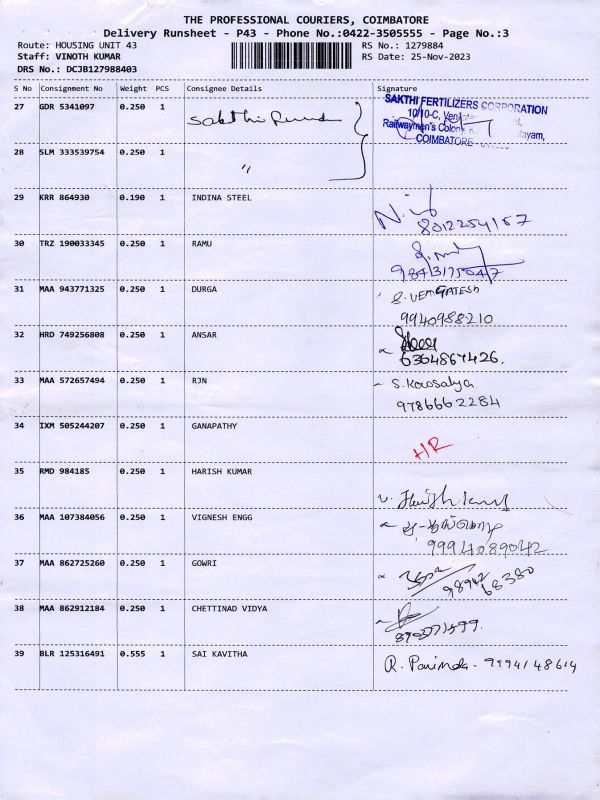 THE PROFESSIONAL COURIERS, COIMBATORE
Delivery Runsheet - P43 - Phone No.:0422-3505555 - Page No.:3
Route: HOUSING UNIT 43 RS No.: 1279884
Staff: VINOTH KUMAR RS Date: 25-Nov-2023
DRS No.: DCJB127988403
S No Consignment No Weight PCS Consignee Details Signature
27 GDR 5341097 0.250 1 Sakthi
SAKTHI FERTILIZERS CORPORATION
10/10-C,
Railwaymen's Colony
COIMBATORE
28 SLM 333539754 0.250 1 "
29 KRR 864930 0.190 1 INDINA STEEL
8012254157
30 TRZ 190033345 0.250 1 RAMU
9843175047
31 MAA 943771325 0.250 1 DURGA
9940988210
32 HRD 749256808 0.250 1 ANSAR
6364867426.
33 MAA 572657494 0.250 1 RJN S. Kowsalya
9786662284
34 IXM 505244207 0.250 1 GANAPATHY
HR
35 RMD 984185 0.250 1 HARISH KUMAR
36 MAA 107384056 0.250 1 VIGNESH ENGG
9994089042
37 MAA 862725260 0.250 1 GOWRI
98942
68380
38 MAA 862912184 0.250 1 CHETTINAD VIDYA
39 BLR 125316491 0.555 1 SAI KAVITHA
9994148614